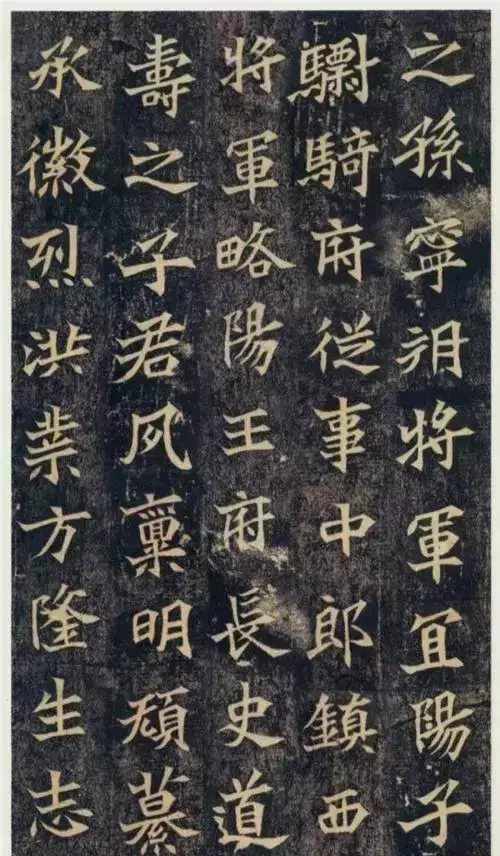 之孫寧朔將軍冝陽子
驃騎府從事中郎鎮西
將軍略陽王府長史道
壽之子君夙稟明纂
承徽烈洪業方隆生志